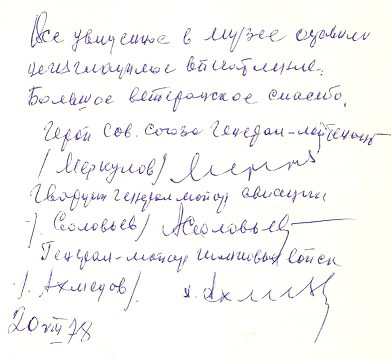 Все увиденное в музее оставило
неизгладимое впечатление.
Большое ветеранское спасибо.
Герой Сов. Союза генерал-лейтенант
/Меркулов/
Гвардии генерал-майор авиации
/Соловьев/ А Соловьев
Генерал-майор химических войск
/Ахмедов/
20 VIII 78